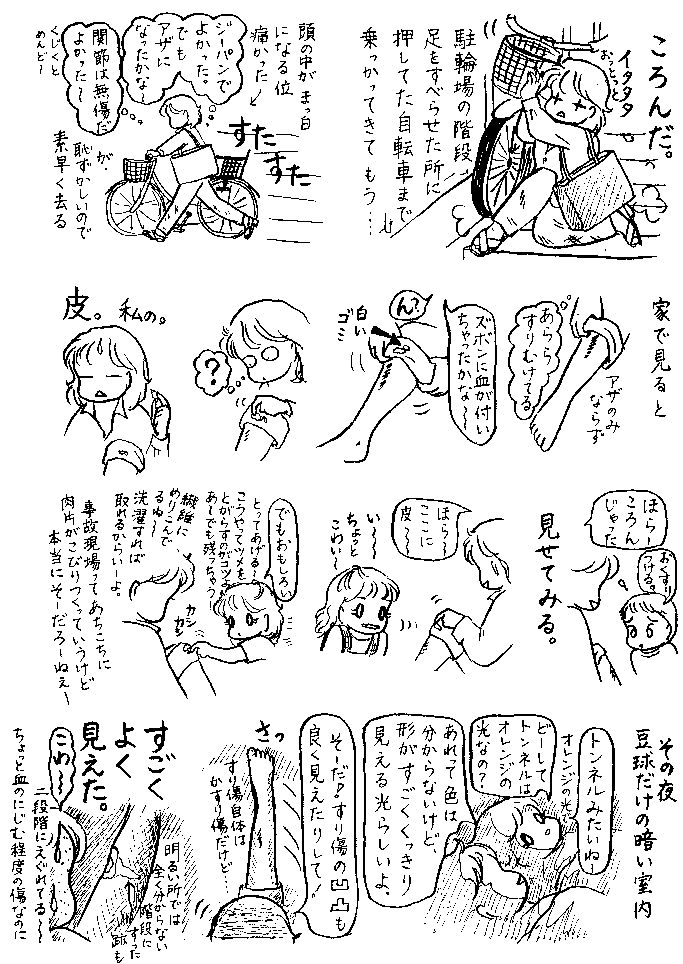 ころんだ。
イタタタ
おっとっと
駐輪場の階段
足をすべらせた所に
押してた自転車まで
乗っかってきてもう…
頭の中がまっ白
になる位
痛かった!
ジーパンで
よかった。
でも
アザに
なったかな〜
関節は無傷だ
よかった〜
くじくと
めんど〜
すた
すた
が、
恥ずかしいので
素早く去る
家で見ると
アザのみ
ならず
あらら
すりむけてる
ズボンに血が付い
ちゃったかな〜
ん?
白い
ゴミ
?
皮。
私の。
ほら〜
ころん
じゃった
おくすり
つける?
見せてみる。
ほら〜
ここに
皮〜
い〜〜
ちょっと
こわい〜
でもおもしろい
とってあげる〜
こうやってツメを
とがらすのがコツよ
あ〜でも残っちゃう〜
カシ
カシ
繊維に
めりこんで
るね〜
洗濯すれば
取れるからいーよ。
事故現場ってあちこちに
肉片がこびりつくっていうけど
本当にそーだろーねぇ〜
その夜
豆球だけの暗い室内
トンネルみたいねー
オレンジの光
どーして
トンネルは
オレンジの
光なの?
あれって色は
分からないけど、
形がすごくくっきり
見える光らしいよ。
そーだ!すり傷の凹凸も
良く見えたりして!
さっ
すり傷自体は
かすり傷だけど…
すごく
よく
見えた。
明るい所では
全く分からない
階段に
すった
跡も
こわ〜〜
二段階にえぐれてる〜〜
ちょっと血のにじむ程度の傷なのに